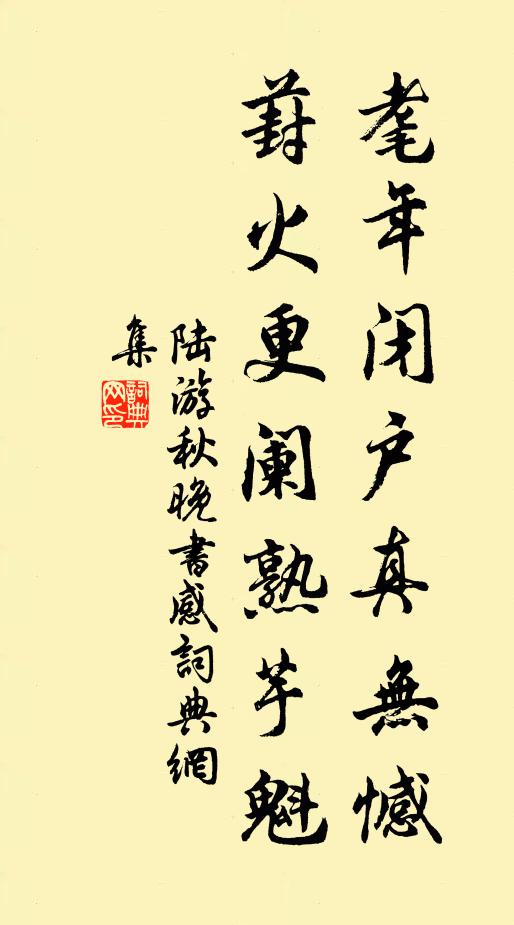 耄年闭户真無憾
葑火更阑熟芋魁
陆游秋晚書感詞典網
集
詞典
网印